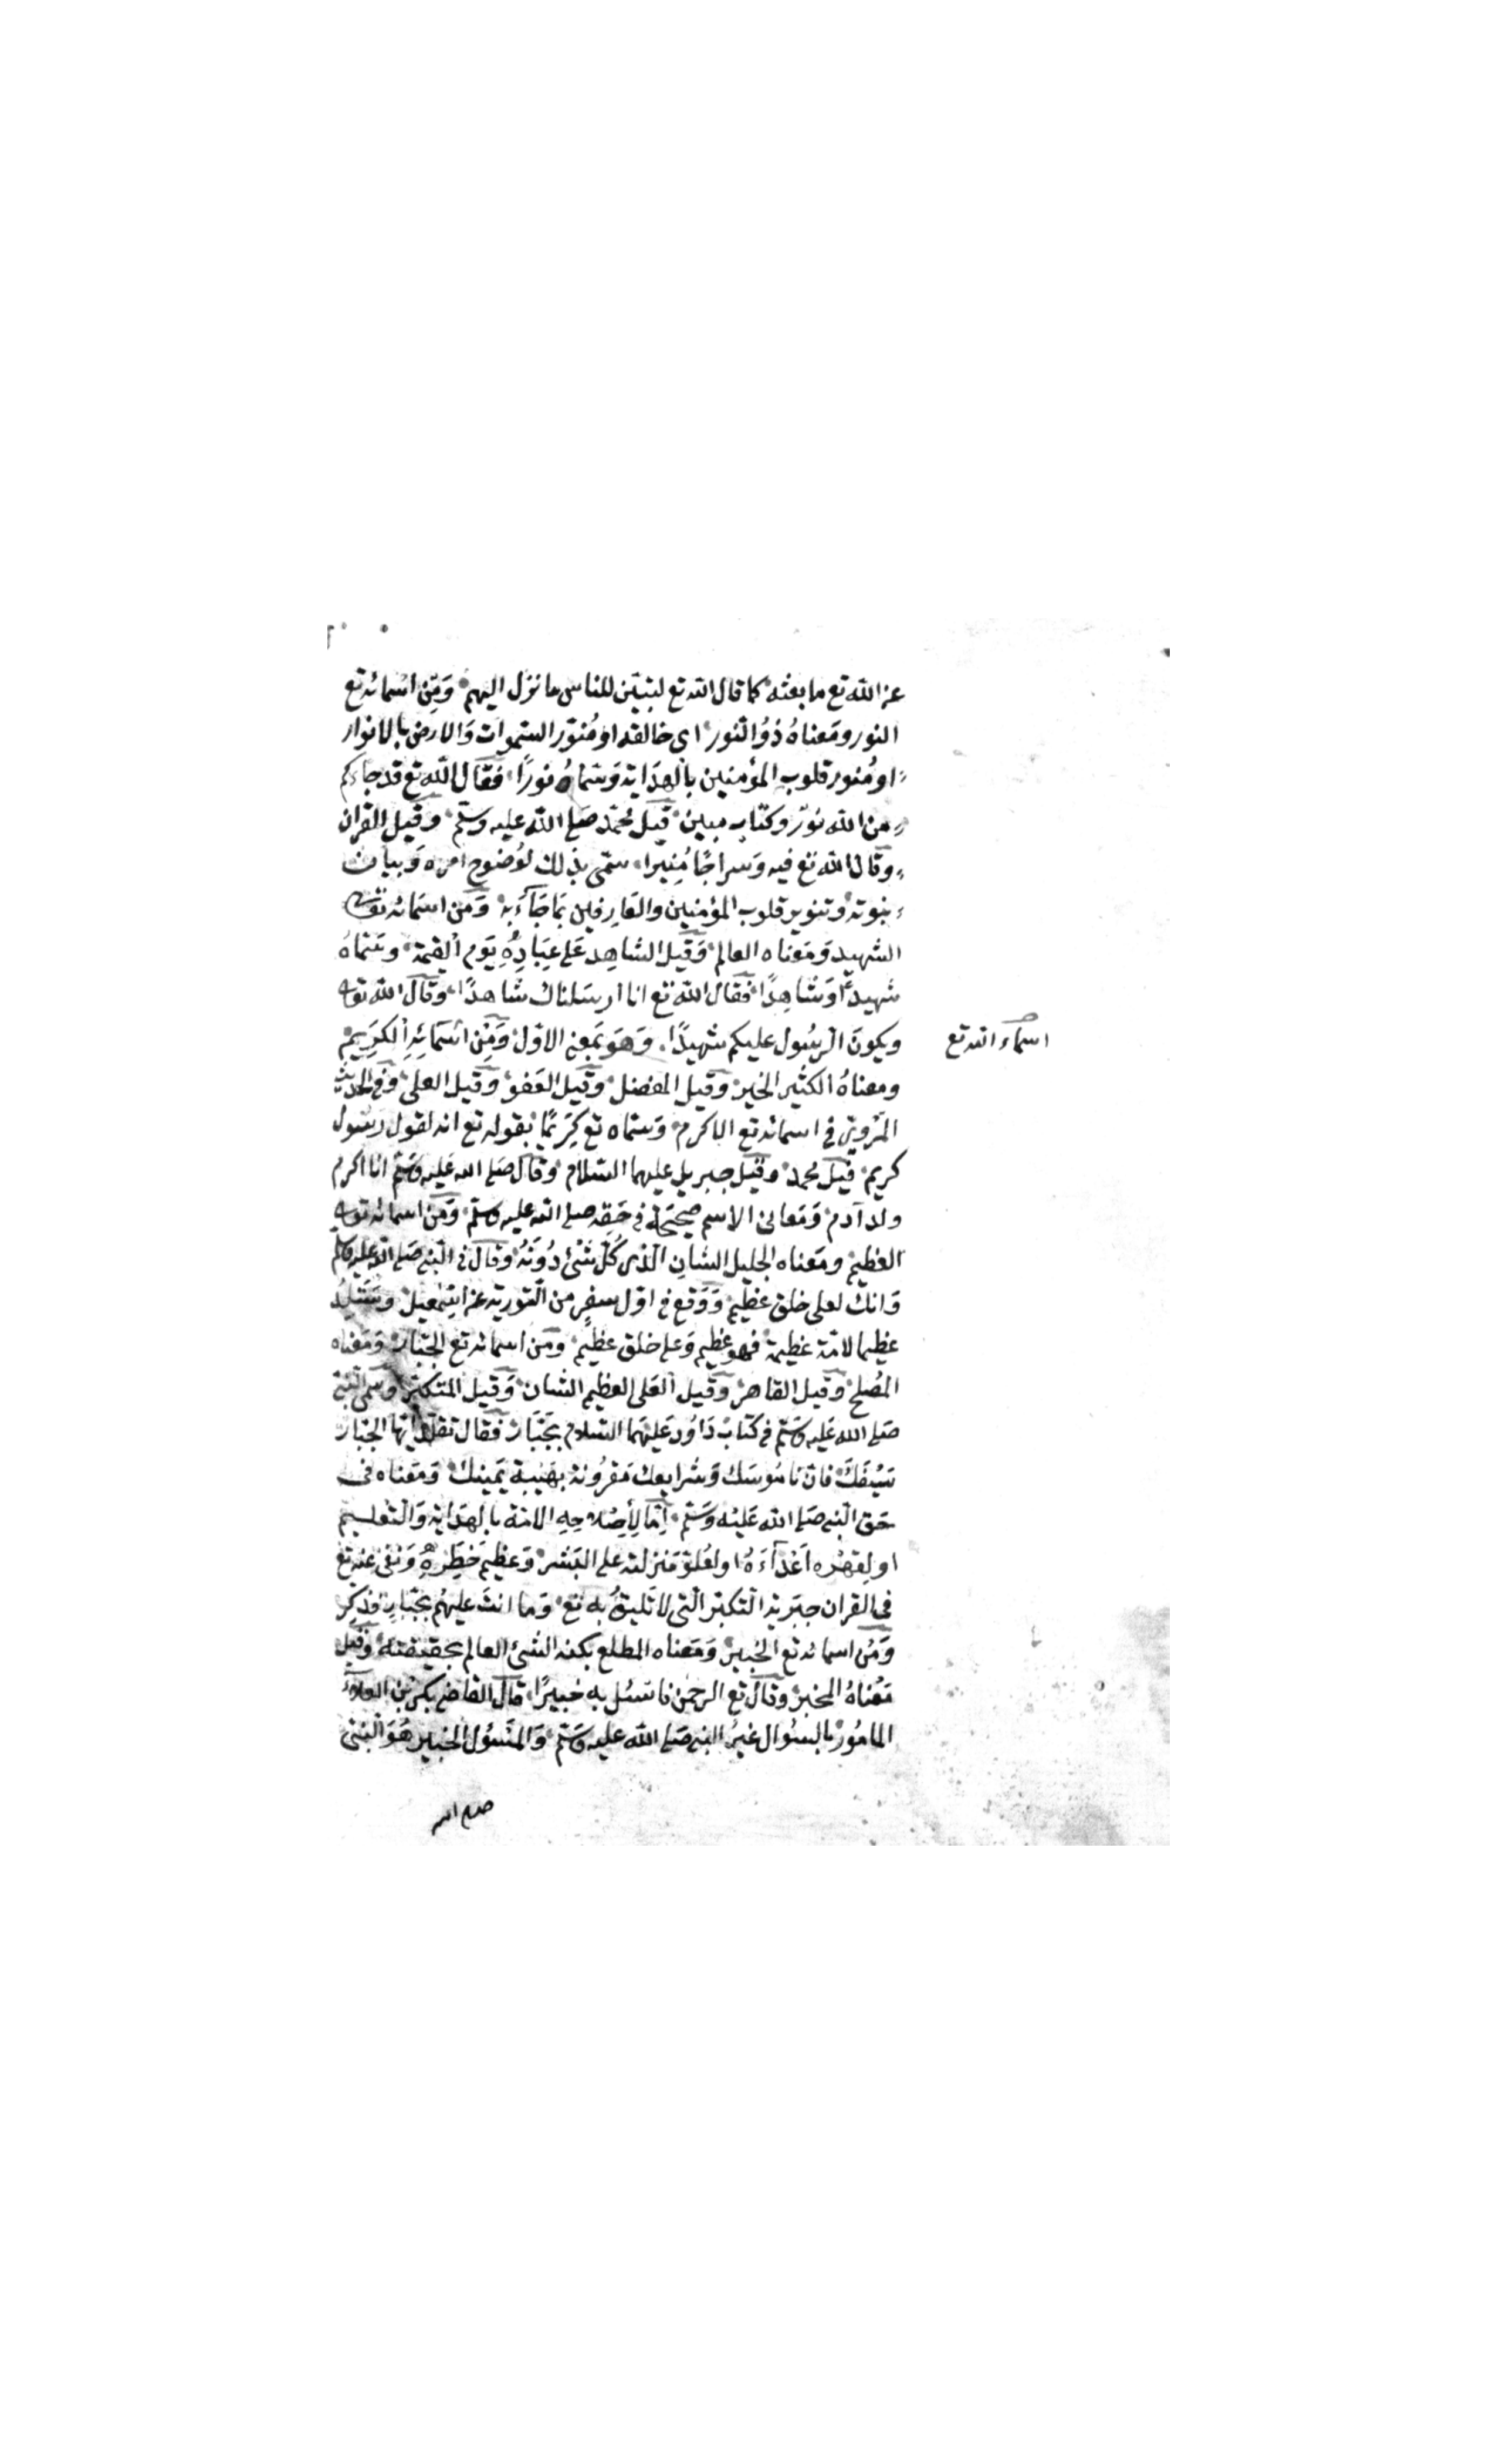 عن الله تع ما بعثه كما قال الله تع لتبين للناس ما نزل اليهم وَمِن اسمائه تع
النور ومَعناهُ ذُو النور اى خالقه او مُنوّر السّموات وَالارض بالانوار
او مُنور قلوب المؤمنين بالهدَاية وَسَماهُ نورًا فقال الله تع قد جاءكم
من الله نورٌ وكتاب مبين قيل محمّد صَلى الله عليه وسَلّم وقيل القران
وقال الله تع فيه وَسِراجًا مُنِيرًا سمّى بذلك لوُضوح امره وَبيان
نبوته وتنوير قلوب المؤمنين والعَارفين بمَا جَآءَ به وَمن اسمائه تعالى
الشهيد وَمَعناه العالم وَقيل الشاهِد عَلى عِبَادِهِ يَوم القيمة وسَمّاهُ
شهيدًا وَشَاهِدًا فقال الله تع انا ارسَلناك شاهدًا وَقال الله تعالى
ويكونَ الرسُول عليكم شهيدًا وَهوَ بمَعنى الاوّل وَمِن اسمَائِهِ الكرِيم
اسمآء الله تع
ومعناهُ الكثير الخير وَقيل المفضل وَقيل العَفو وَقيل العلى وَفى الحديث
المَرْوىّ فى اسمائه تع الاكرم وَسَمّاه تع كرِيمًا بقوله تع انه لقول رسُول
كريم قيل محمد وَقيل جبريل عليهما السّلام وَقال صَلى الله عَليه وسَلم انا اكرم
ولد آدم وَمَعانى الاسم صحيحَة فى حَقِه صلى الله عليه وسلم وَمن اسمائه تعالى
العَظيم ومَعناه الجليل الشان الذى كُلّ شَئ دُونَهُ وَقال فى النّبى صَلى الله عليه وسلم
وَانك لعلى خلق عظيم وَوَقع فى اوّل سفرٍ من التّورية عن اسمعيل وسَتَلِدُ
عظيما لامّة عظيمة فهو عَظيم وَعلى خلق عَظيم وَمن اسمائه تع الجبّار وَمَعناه
المُصلح وَقيل القاهر وَقيل العَلى العظيم الشان وَقيل المتكبّر وَسمّى النّبى
صَلى الله عَليه وسَلم فى كتاب دَاوُد عَليهمَا السّلام بجَبّار فقال تقلّد ايّها الجبّار
سَيْفَكَ فانّ نامُوسَك وَشرايعك مَقرُونة بهَيبة يَمينك وَمَعناه فى
حَق النّبى صَلى الله عَليْه وَسَلم اِمّا لِاصْلاحِهِ الامّة بالهدَاية وَالتّعليم
او لِقهره اَعْدَآءَهُ او لعُلوّ مَنزلته على البَشر وَعظيم خَطَرِهِ وَنفى عنه تع
فى القران جبَرية التكبّر التى لا تَليقُ به تع وَما انت عليهُم بجَبّارٍ فذكِر
وَمن اسمائه تع الخبير وَمَعناه المطلع بكنه الشئ العالم بحقيقته وَقيل
مَعناهُ المخبر وَقال تع الرحمن فاسئل به خبيرًا قال القاضى بكر بن العلاء
المامُور بالسُوال غيرُ النبى صَلى الله عليه وسَلم وَالمسَؤل الخبير هُوَ النبى